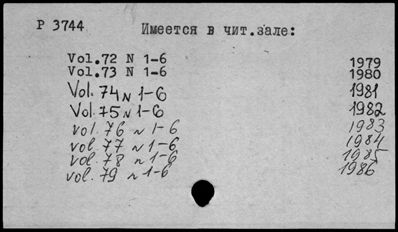 P 3744 Имеется в чит.зале:
Vol.72 N 1-6 1979
Vol.73 N 1-6 1980
Vol. 74 N 1-6 1981
Vol. 75 N 1-6 1982
vol. 76 N 1-6 1983
vol. 77 N 1-6 1984
vol. 78 N 1-6 1985
vol. 79 N 1-6 1986